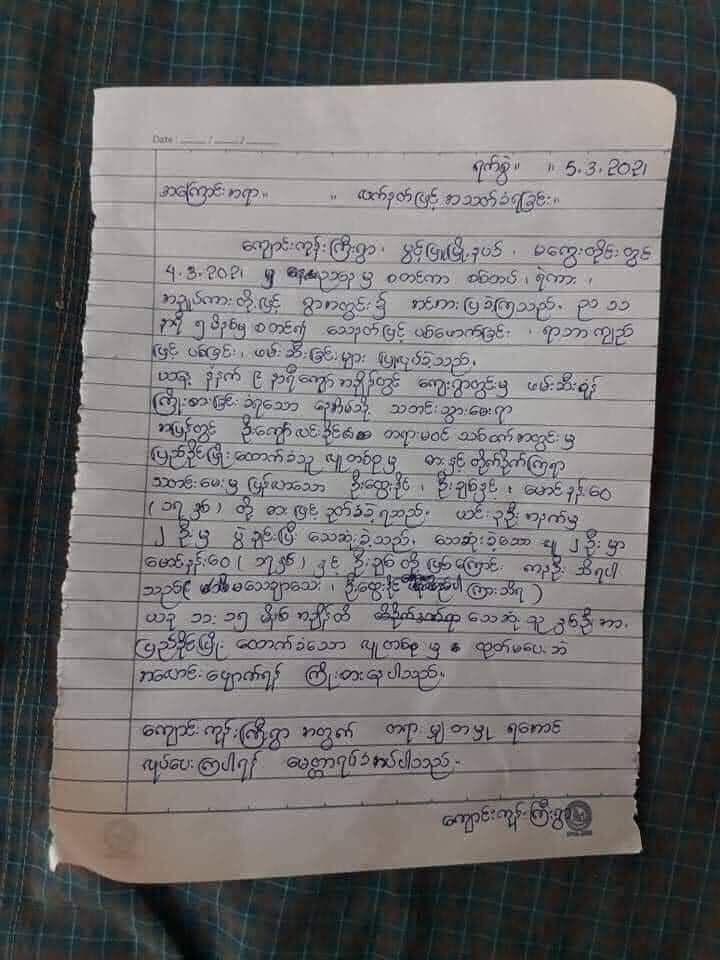 Date : ____ / ____ / ____
ရက်စွဲ။ ။ 5.3.2021
အကြောင်းအရာ။ ။ လက်နက်ဖြင့် အသတ်ခံရခြင်း။
ကျောင်းကုန်းကြီးရွာ၊ ပွင့်ဖြူမြို့နယ်၊ မကွေးတိုင်းတွင်
4.3.2021 ညသုမှ စတင်ကာ စစ်တပ်၊ ရဲကား၊
အရပ်ကားတို့ဖြင့် ရွာအတွင်း၌ အင်အားပြခဲ့ကြသည်။ ည ၁၁
နာရီ ၅ မိနစ်မှ စတင်၍ သေနတ်ဖြင့် ပစ်ဖောက်ခြင်း၊ ရာဘာကျည်
ဖြင့် ပစ်ခြင်း၊ ဖမ်းဆီးခြင်းများ ပြုလုပ်ခဲ့သည်။
ယနေ့ နံနက် ၉ နာရီကျော်အချိန်တွင် ကျေးရွာတွင်းမှ ဖမ်းဆီးရန်
ကြိုးစားခြင်းခံရသော နေအိမ်သို့ သတင်းသွားမေးရာ
အပြန်တွင် ဦးကျော်လင်းခိုင် တရားမဝင် သစ်စက်အတွင်းမှ
ပြည်ခိုင်ဖြိုးထောက်ခံသူ လူတစ်စုမှ ဓားနှင့်တိုက်ခိုက်ကြရာ
သတင်းမေးမှ ပြန်လာသော ဦးထွေးခိုင်၊ ဦးချစ်နှင့်၊ မောင်နန်းဝေ
(၁၇ နှစ်) တို့ ဓားဖြင့်ခုတ်ခံခဲ့ရသည်။ ယင်း ၃ ဦးအနက်မှ
၂ ဦးမှ ပွဲချင်းပြီး သေဆုံးခဲ့သည်။ သေဆုံးခဲ့သော လူ ၂ ဦးမှာ
မောင်နန်းဝေ (၁၇ နှစ်) နှင့် ဦးချစ်တို့ဖြစ်ကြောင်း ကနဦး သိရပါ
သည်။ မသေချာသေး၊ ဦးထွေးခိုင် ကြားသိရ)
ယခု ၁၁:၁၅ မိနစ်အချိန်ထိ သေဆုံးသူ နှစ်ဦးအား
ပြည်ခိုင်ဖြိုး ထောက်ခံသော လူတစ်စုမှ ထုတ်မပေးဘဲ
အလောင်းဖျောက်ရန် ကြိုးစားနေပါသည်။
ကျောင်းကုန်းကြီးရွာအတွက် တရားမျှတမှု ရအောင်
လုပ်ပေးကြပါရန် မေတ္တာရပ်ခံအပ်ပါသည်။
ကျောင်းကုန်းကြီးရွာ